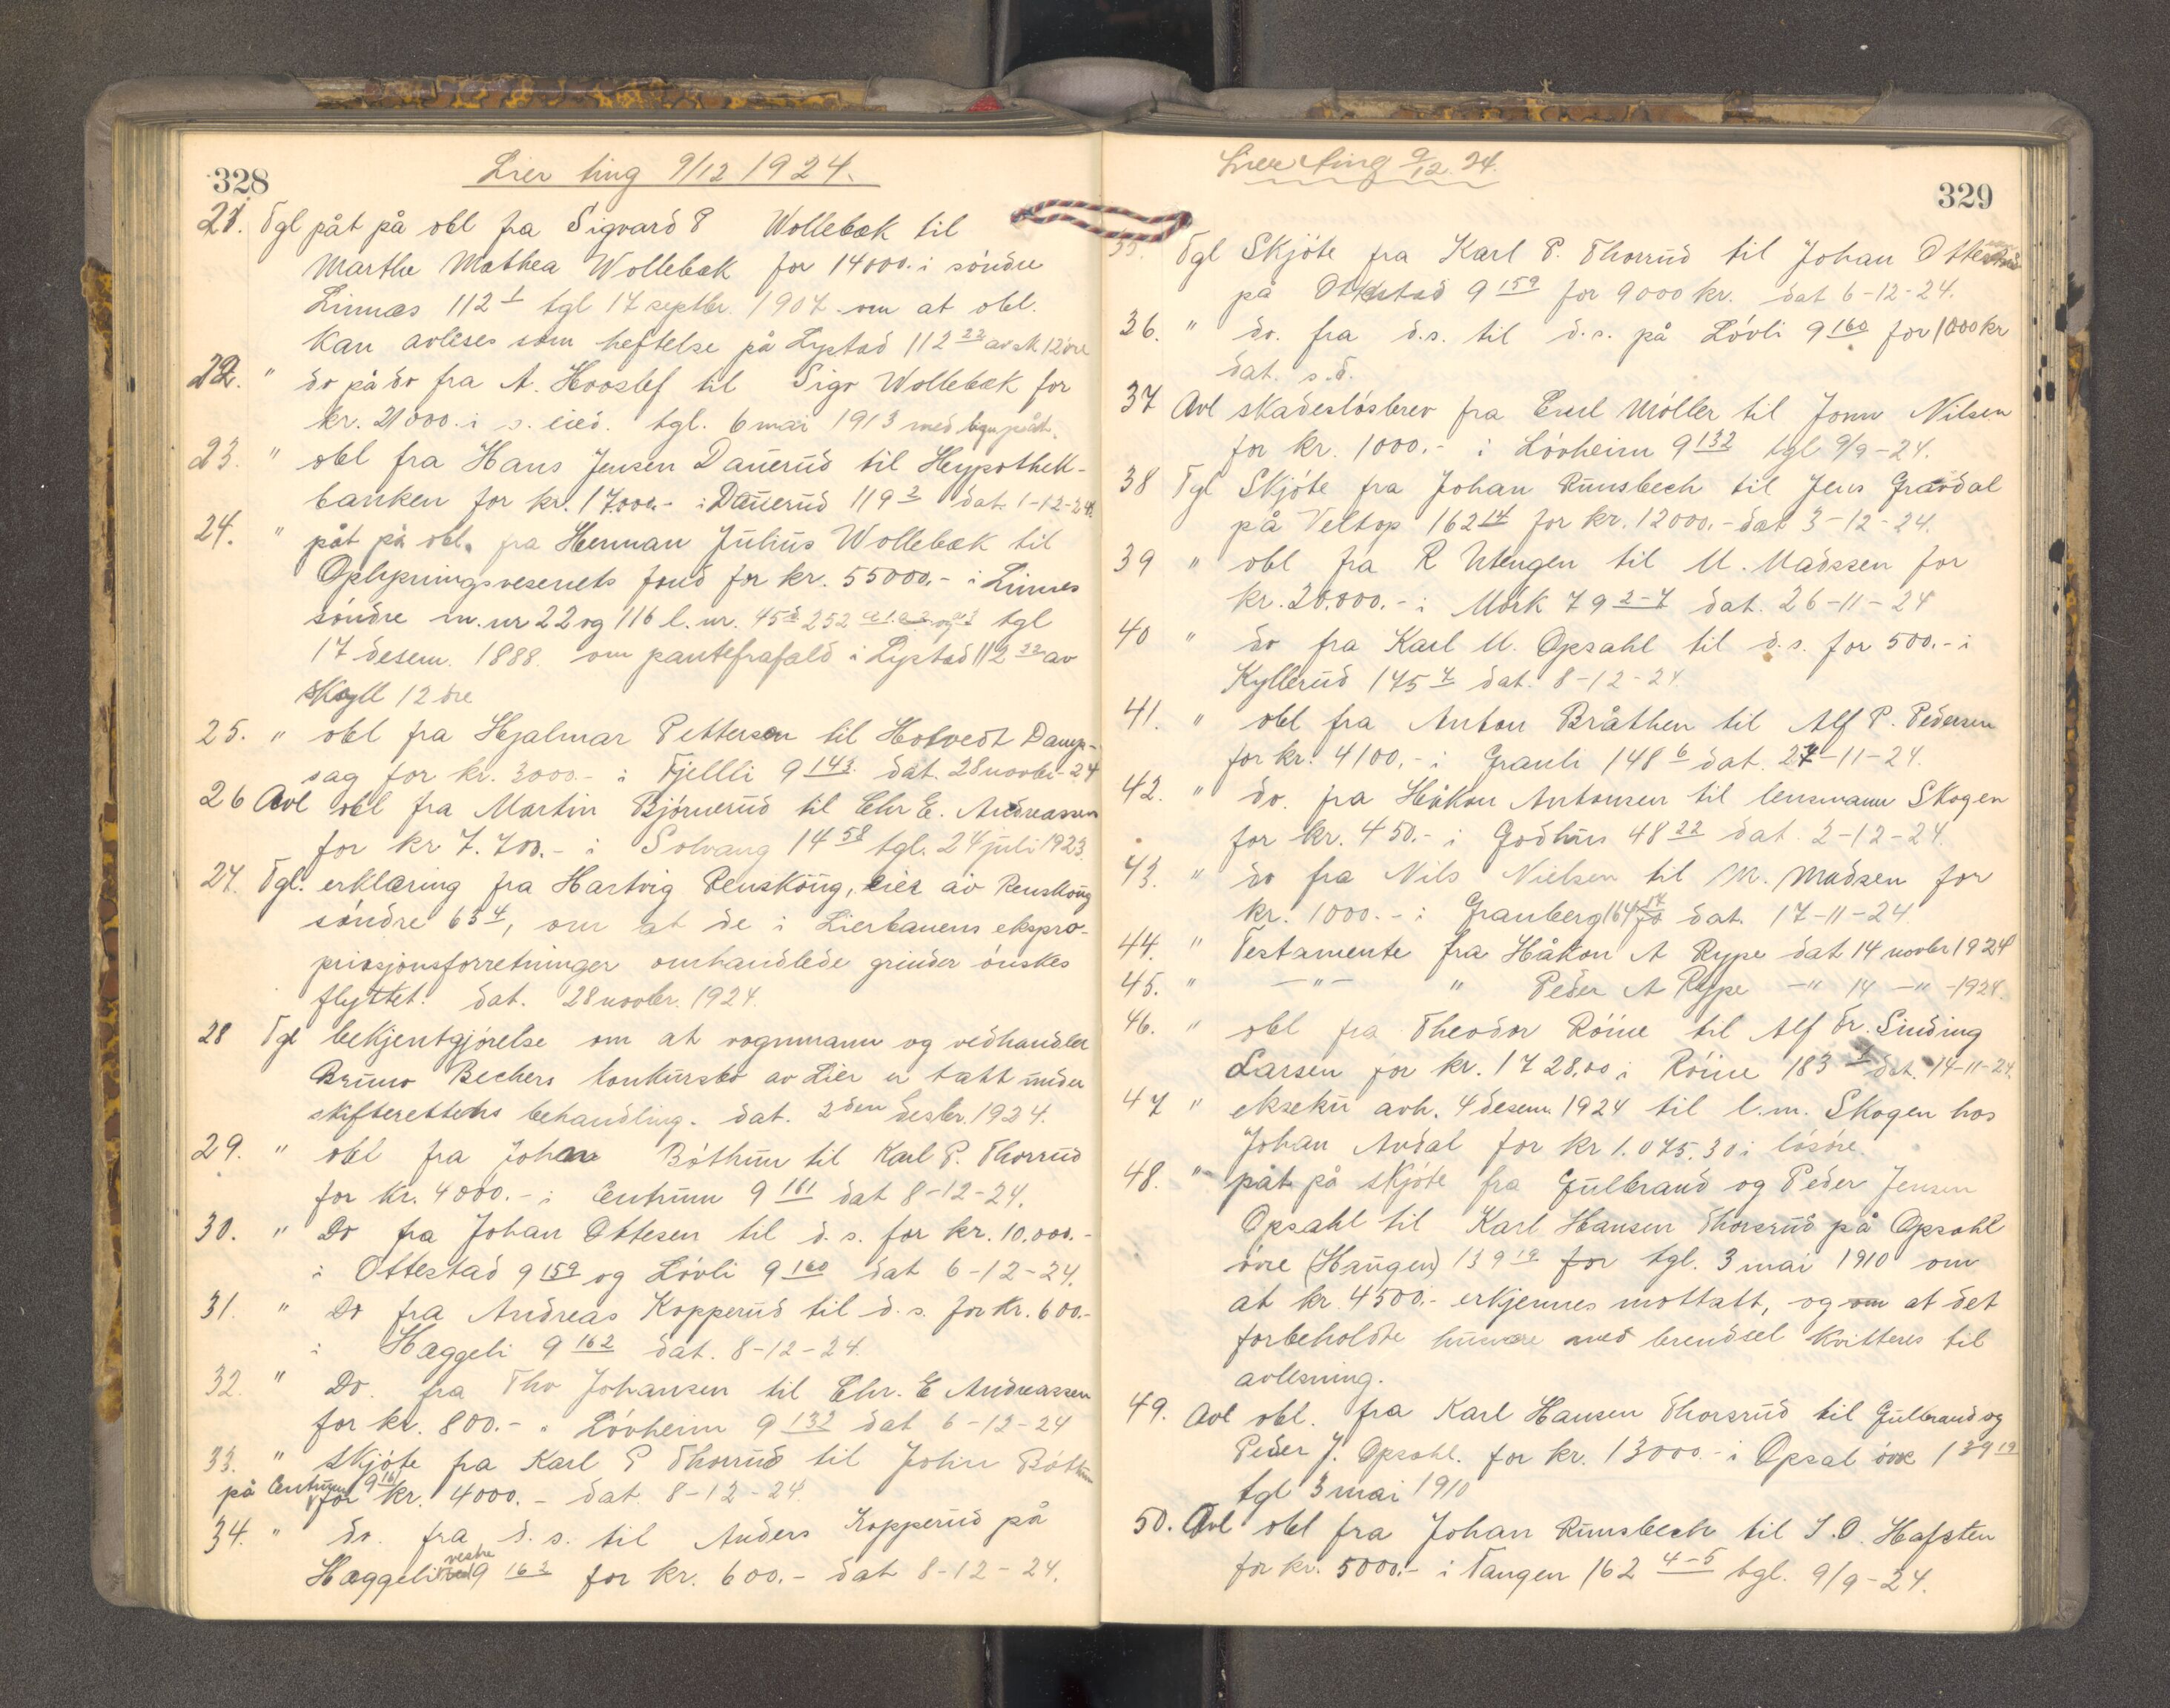 328
Lier ting 9/12 1924.
21. Tgl påt på obl fra Sigvard P Wollebæk til
Marthe Mathea Wollebæk for 14000. i söndre
Linnæs 112 1 tgl 17 septbr. 1907 om at obl.
kan avleses som heftelse på Lystad 112 22 av sk 12 öre
22. " do på do fra A. Hooslef til Sigv Wollebæk for
kr. 21000. i s. eied. tgl. 6 mai 1913 med påt.
23. " obl fra Hans Jensen Dauerud til Hypothek-
banken for kr. 17.000.- i Dauerud 119 2 dat. 1-12-24.
24. " påt på obl. fra Herman Julius Wollebæk til
Oplysningsvesenets fond for kr. 55000.- i Linnes
söndre m.nr 22 og 116 l.nr. 45d 252 tgl
17 desem. 1888. om pantefrafald i Lystad 112 22 av
skyll 12 öre
25. " obl fra Hjalmar Pettersen til Hotvedt Damp-
sag for kr. 3000.- i Fjellli 9 143. dat. 28 novbr.-24
26 Avl obl fra Martin Björnerud til Chr E. Andreassen
for kr 7.700.- i Solvang 14 58 tgl. 24 juli 1923.
27. Tgl. erklæring fra Hartvig Renskoug, eier av Renskoug
söndre 63 4, om at de i Lierbanens ekspro-
priasjonsforretninger omhandlede grinder önskes
flyttet. dat. 28 novbr. 1924.
28 Tgl bekjentgjörelse om at vognmann og vedhandler
Bruno Bechers konkursbo av Lier er tatt under
skifterettens behandling. dat. 2den desbr. 1924.
29. " obl fra Johan Böthun til Karl P. Thorrud
for kr. 4000.- i Centrum 9 161 dat 8-12-24.
30. " Do fra Johan Ottesen til d.s. for kr. 10.000.-
i Ottestad 9 159 og Lövli 9 160 dat 6-12-24.
31. " Do fra Andreas Kopperud til d.s. for kr. 600.-
i Hæggeli 9 162 dat. 8-12-24.
32. " Do. fra Thv Johansen til Chr. E Andreassen
for kr. 800.- " Lövheim 9 132 dat 6-12-24
33. " Skjöte fra Karl P Thorrud til John Böthun
på Centrum 9 161 for kr. 4000.- dat. 8-12-24.
34. " do. fra d.s. til Anders Kopperud på
Hæggeli vestre 9 162 for kr. 600.- dat 8-12-24.
Lier ting 9/12. 24.
329
35. Tgl Skjöte fra Karl P. Thorrud til Johan Ottesen
på Ottestad 9 159 for 9000 kr. dat 6-12-24.
36. " do. fra d.s. til d.s. på Lövli 9 160 for 1000 kr
dat. s.d.
37 Avl skadeslösbrev fra Emil Möller til Jonn Nilsen
for kr. 1000.- i Lövheim 9 132 tgl 9/9-24.
38 Tgl Skjöte fra Johan Runsbech til Jens Gravdal
på Veltop 162 14 for kr. 12000.- dat 3-12-24.
39 " obl fra R Utengen til M. Madssen for
kr. 20.000.- i Mörk 79 2-7 dat. 26-11-24
40 " do fra Karl M. Opsahl til d.s. for 500.- i
Kyllerud 145 7 dat. 8-12-24
41. " obl fra Anton Bråthen til Alf P. Pedersen
for kr. 4100.- i Granli 148 6 dat. 24-11-24.
42. " do. fra Håkon Antonsen til lensmann Skogen
for kr. 450.- i Godhus 48 22 dat. 2-12-24.
43. " do fra Nils Nielsen til M. Madsen for
kr. 1000.- i Granberg 164 17 dat. 17-11-24.
44. " Testamente fra Håkon A Rype dat 14 novbr 1924
45. " -"- " Peder A Rype -" 14 -" -1924.
46. " obl fra Theodor Röine til Alf Fr. Sinding
Larsen for kr. 1728.00 i Röine 183 dat. 14-11-24.
47 " ekseku avh. 4 desem. 1924 til l.m. Skogen hos
Johan Avdal for kr 1.075.30 i lösöre.
48. " påt på skjöte fra Gulbrand og Peder Jensen
Opsahl til Karl Hansen Thorsrud på Opsahl
övre (Haugen) 139 19 for tgl. 3 mai 1910 om
at kr. 4500.- erkjennes mottatt, og om at det
forbeholdte husvære med brendsel kvitteres til
avlesning.
49. Avl obl. fra Karl Hansen Thorsrud til Gulbrand og
Peder J. Opsahl. for kr. 13000.- i Opsal övre 139 19
tgl 3 mai 1910
50. Avl obl fra Johan Runsbech til S.O. Hafsten
for kr. 5000.- i Tangen 162 4-5 tgl. 9/9-24.